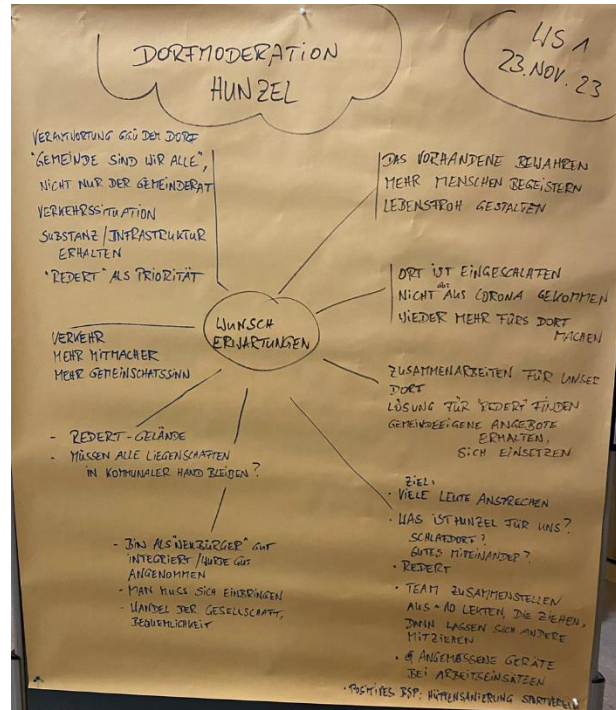 DORFMODERATION
HUNZEL
WS 1
23. NOV. 23
VERANTWORTUNG GGÜ DEM DORF
"GEMEINDE SIND WIR ALLE",
NICHT NUR DER GEMEINDERAT
VERKEHRSSITUATION
SUBSTANZ/INFRASTRUKTUR
ERHALTEN
"REDERT" ALS PRIORITÄT
DAS VORHANDENE BEWAHREN
MEHR MENSCHEN BEGEISTERN
LEBENSFROH GESTALTEN
ORT IST EINGESCHLAFEN
NICHT AUS CORONA GEKOMMEN
WIEDER MEHR FÜRS DORF
MACHEN
WUNSCH
ERWARTUNGEN
VERKEHR
MEHR MITMACHER
MEHR GEMEINSCHAFTSSINN
ZUSAMMENARBEITEN FÜR UNSER
DORF
LÖSUNG FÜR "REDERT" FINDEN
GEMEINDEEIGENE ANGEBOTE
ERHALTEN,
SICH EINSETZEN
- REDERT-GELÄNDE
- MÜSSEN ALLE LIEGENSCHAFTEN
IN KOMMUNALER HAND BLEIBEN?
ZIEL:
• VIELE LEUTE ANSPRECHEN
• WAS IST HUNZEL FÜR UNS?
SCHLAFDORF?
GUTES MITEINANDER?
• REDERT
• TEAM ZUSAMMENSTELLEN
AUS 10 LEUTEN, DIE ZIEHEN,
DANN LASSEN SICH ANDERE
MITZIEHEN
• ANGEMESSENE GERÄTE
BEI ARBEITSEINSÄTZEN
• POSITIVES BSP: HÜTTENSANIERUNG SPORTVEREIN
- BIN ALS "NEUBÜRGER" GUT
INTEGRIERT/WURDE GUT
ANGENOMMEN
- MAN MUSS SICH EINBRINGEN
- WANDEL DER GESELLSCHAFT,
BEQUEMLICHKEIT